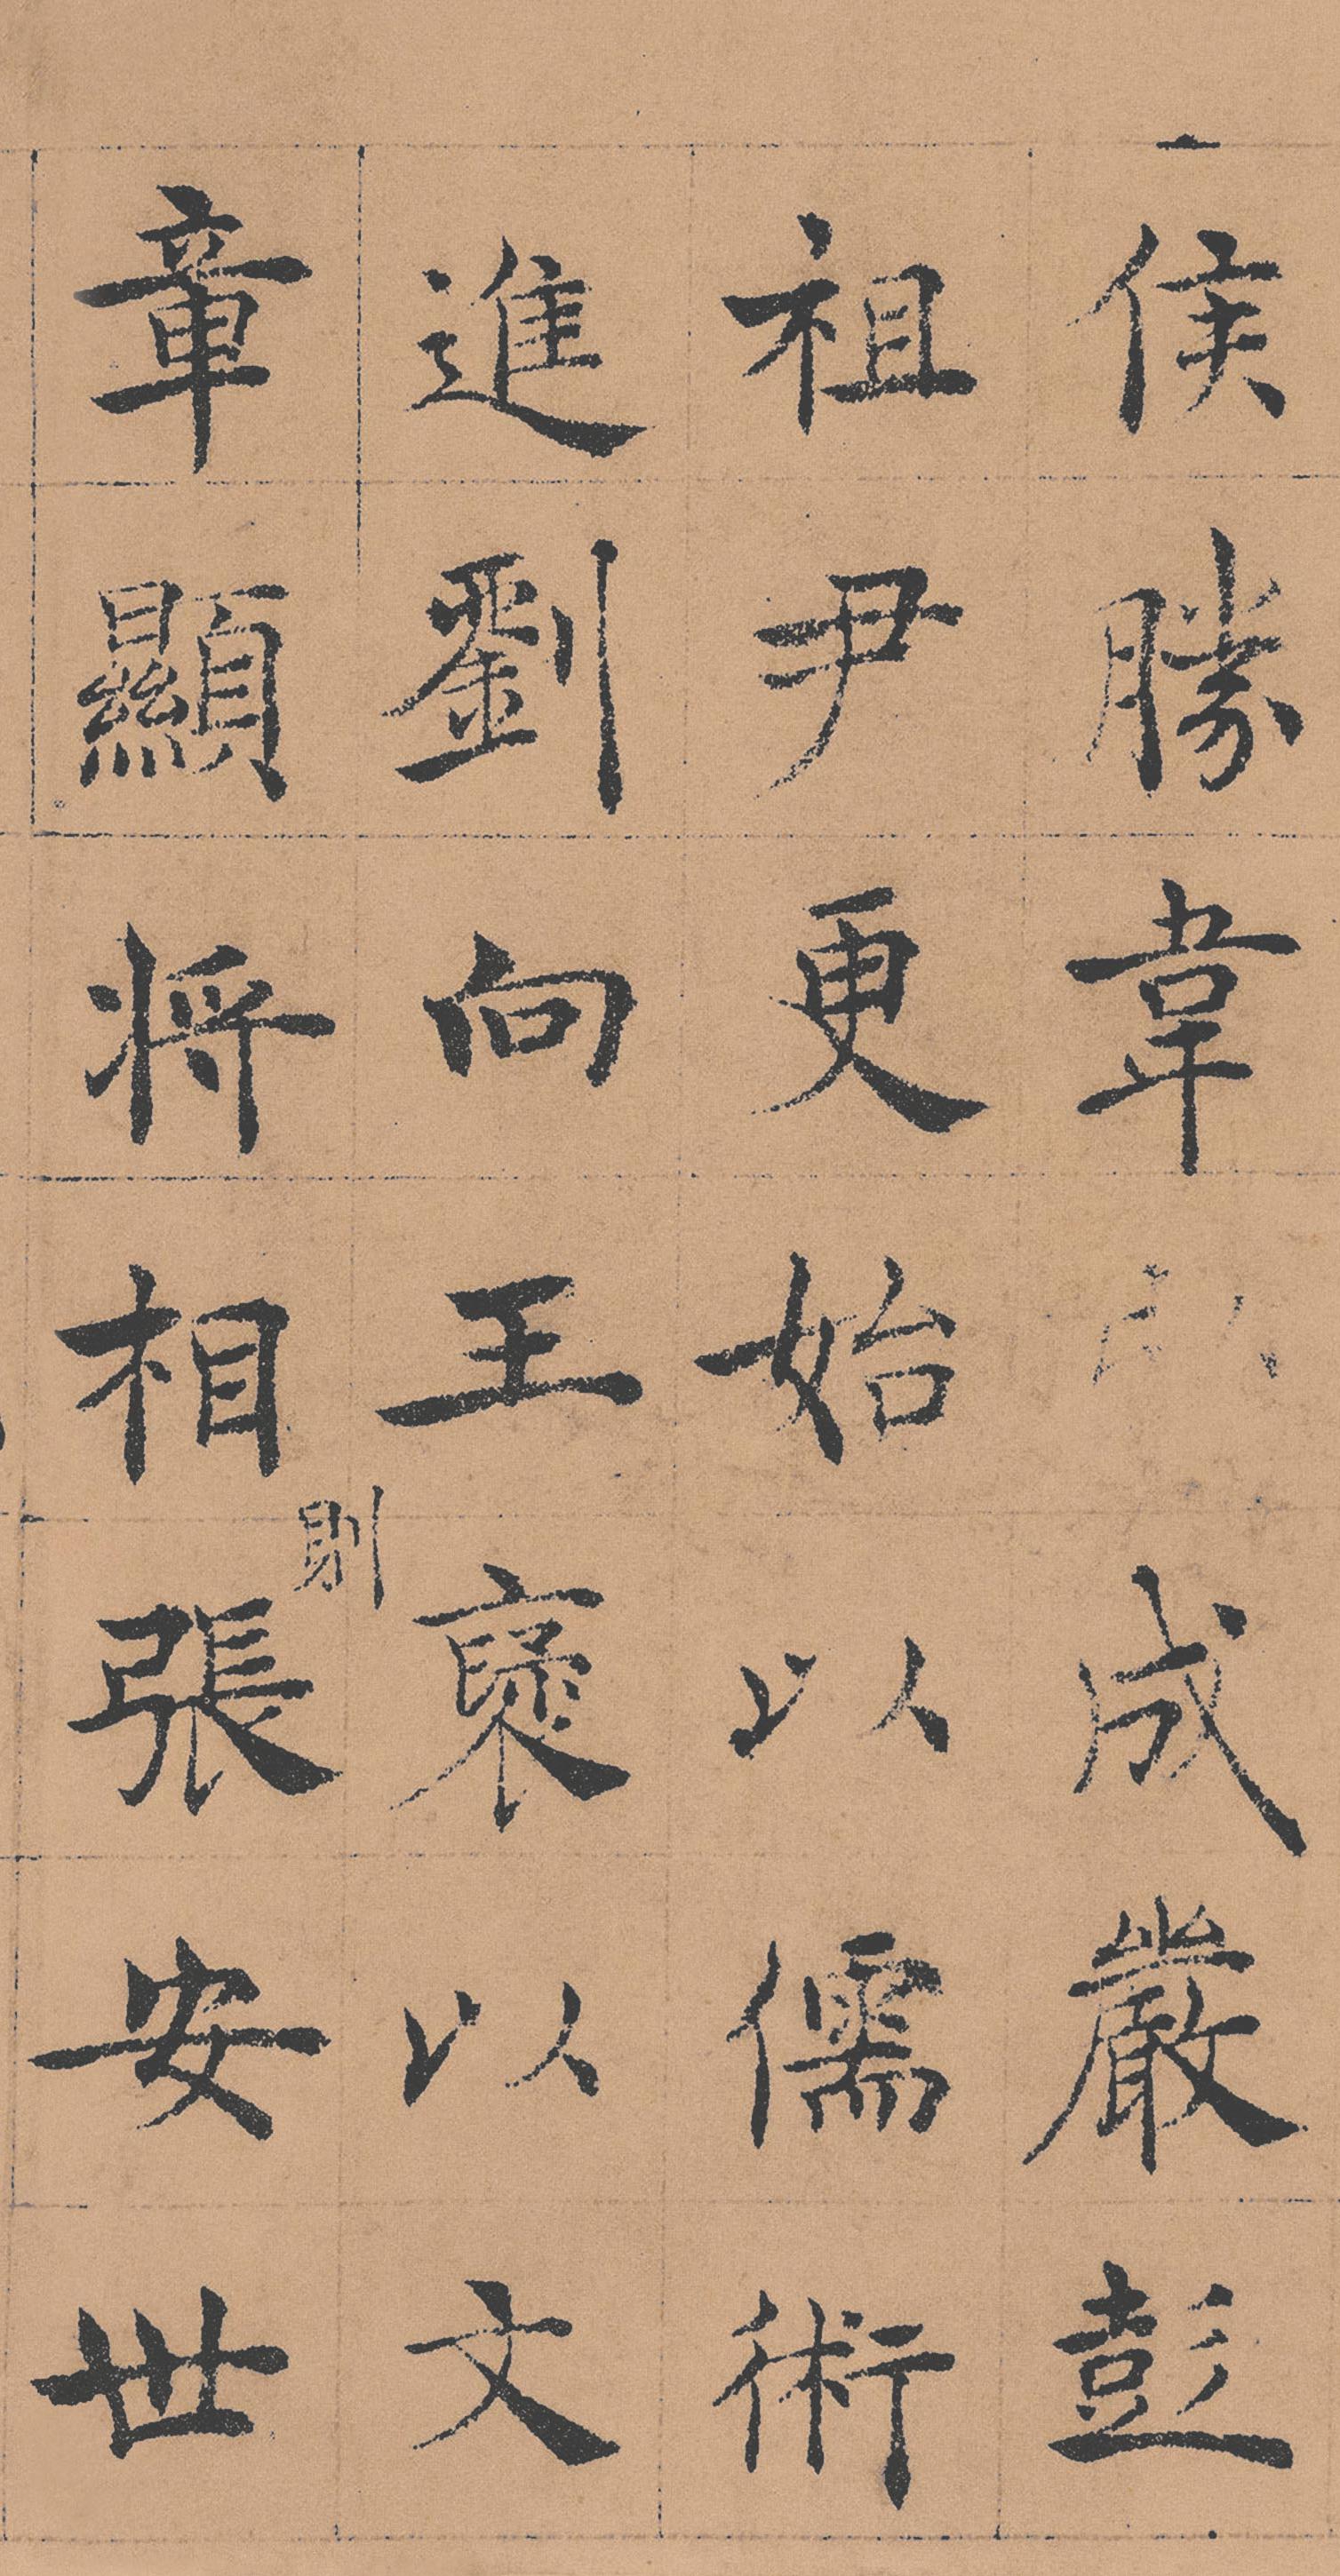 侯勝韋成嚴彭
祖尹更始以儒術
進劉向王褒以文
章顯將相則張安世